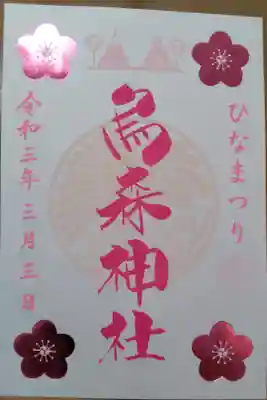 ひなまつり
烏森神社
令和三年三月三日